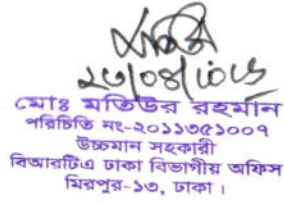 ২৩/০৪/২০১৬
মোঃ মতিউর রহমান
পরিচিতি নং-২০১১৩৫১০০৭
উচ্চমান সহকারী
বিআরটিএ ঢাকা বিভাগীয় অফিস
মিরপুর-১৩, ঢাকা।